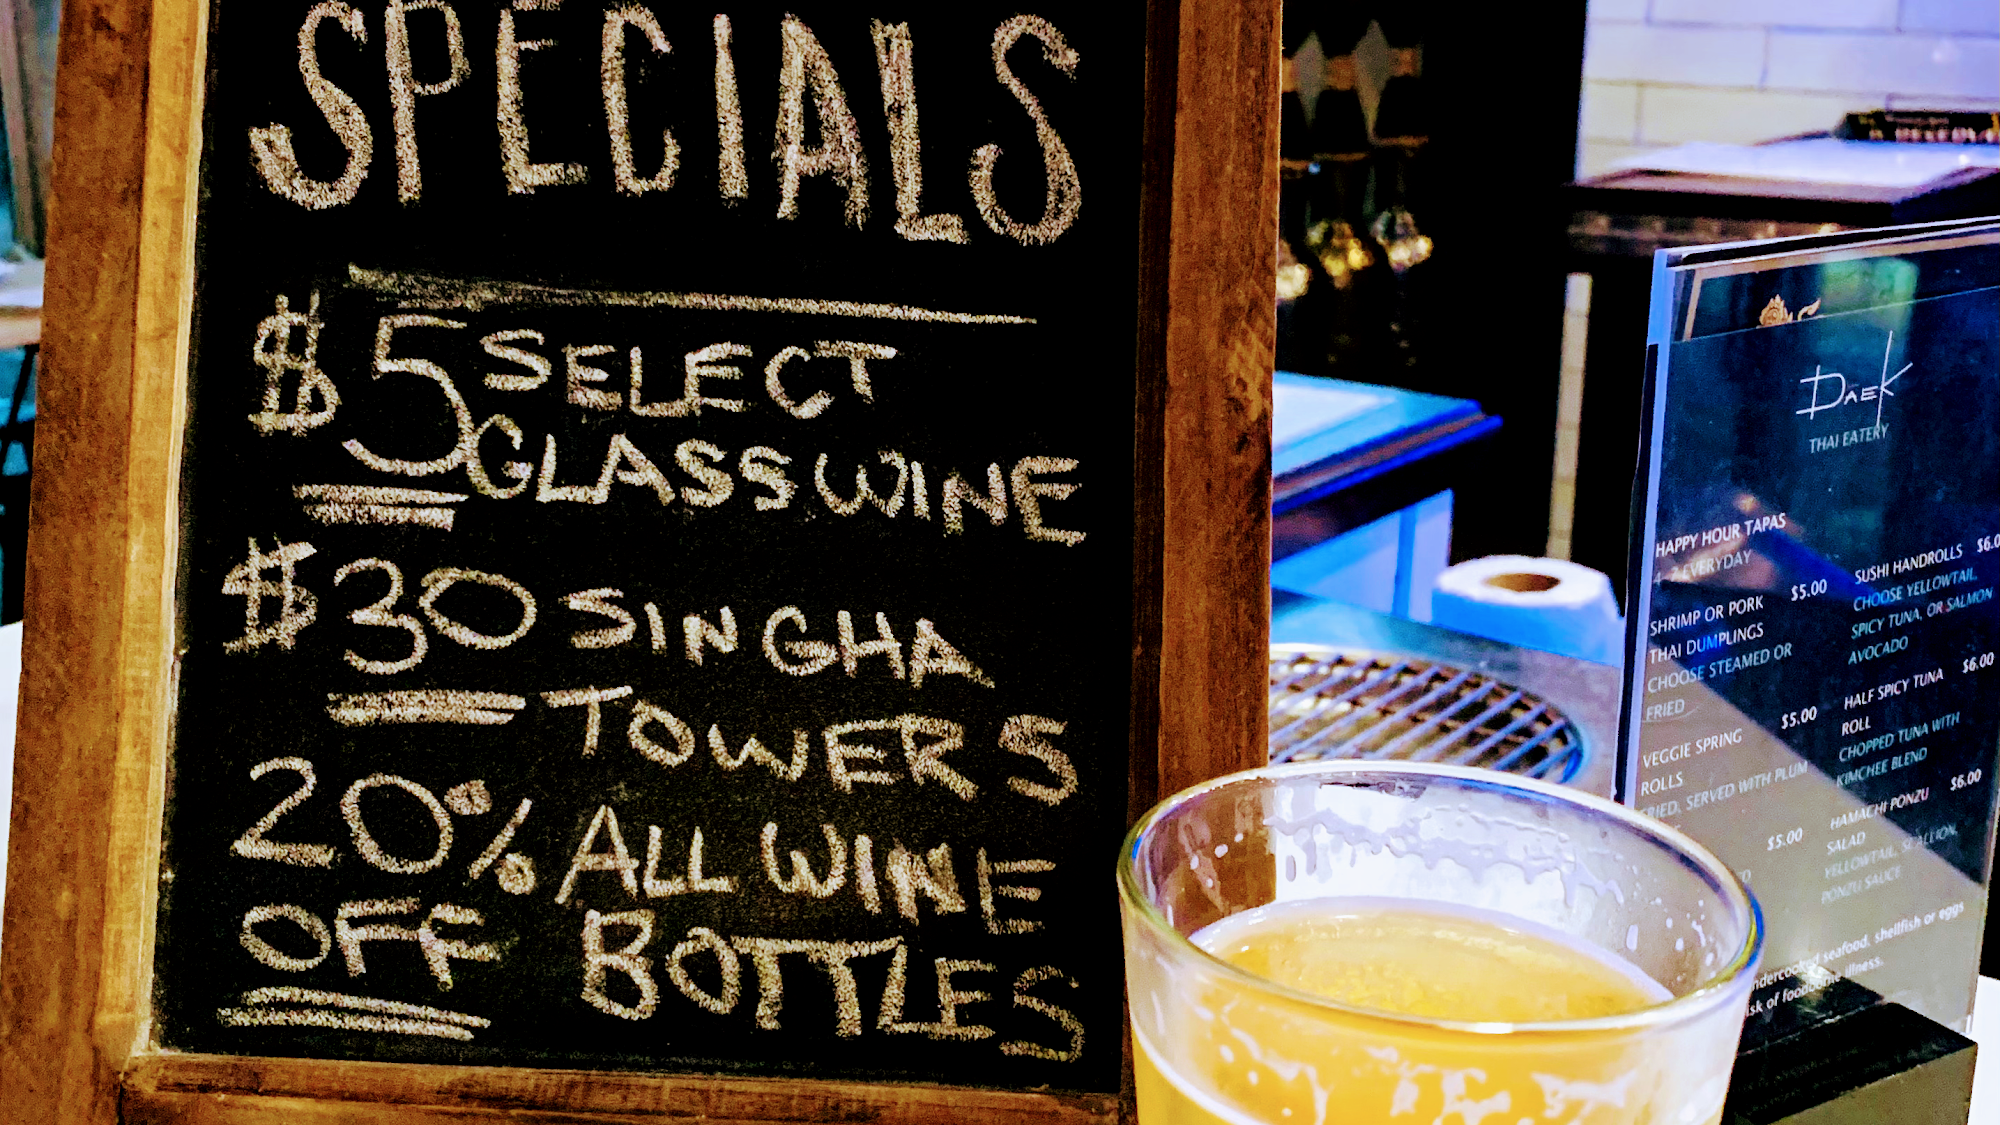 SPECIALS
$5 SELECT
GLASS WINE
$30 SINGHA
TOWERS
20% ALL WINE
OFF BOTTLES
DAEK
THAI EATERY
HAPPY HOUR TAPAS
EVERYDAY
SHRIMP OR PORK $5.00
THAI DUMPLINGS
CHOOSE STEAMED OR
FRIED
VEGGIE SPRING $5.00
ROLLS
FRIED, SERVED WITH PLUM
$5.00
SUSHI HANDROLLS
CHOOSE YELLOWTAIL,
SPICY TUNA, OR SALMON
AVOCADO
HALF SPICY TUNA $6.00
ROLL
CHOPPED TUNA WITH
KIMCHEE BLEND
HAMACHI PONZU $6.00
SALAD
YELLOWTAIL, SCALLION,
PONZU SAUCE
seafood, shellfish or eggs
of foodborne illness.